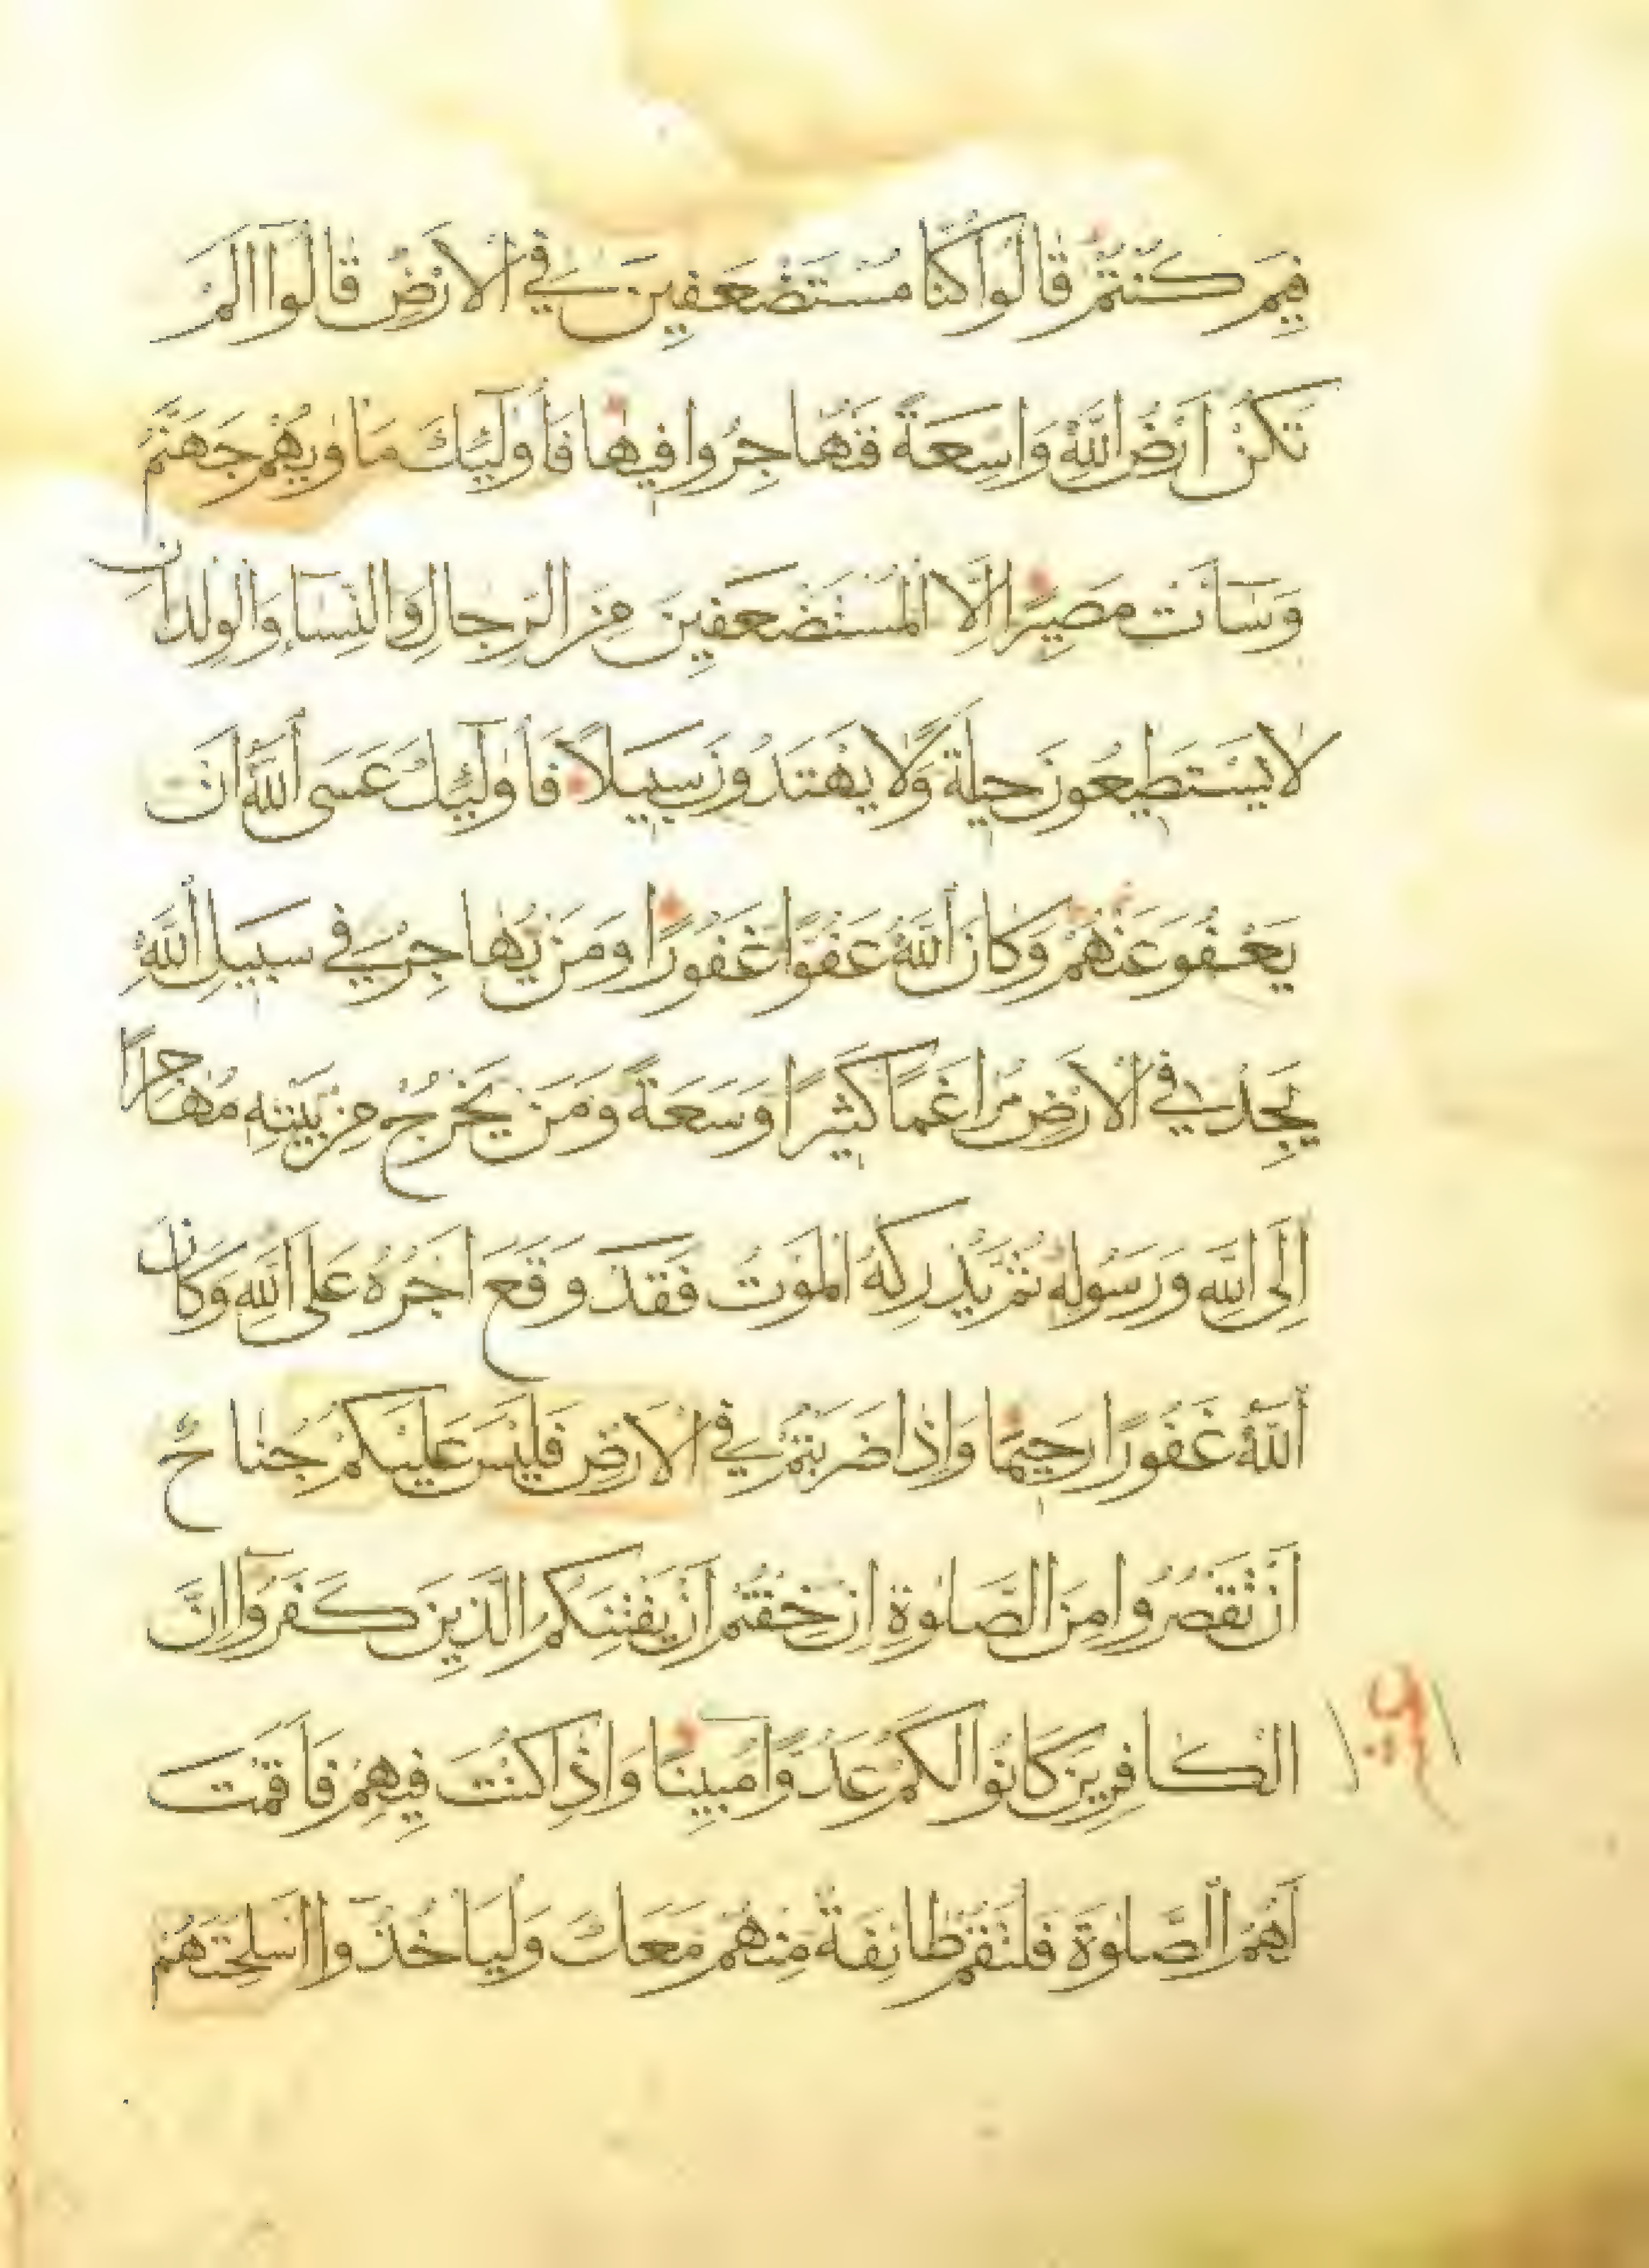 فِيمَ كُنْتُمْ قَالُوا كُنَّا مُسْتَضْعَفِينَ فِي الْاَرْضِ قَالُوا اَلَمْ
تَكُنْ اَرْضُ اللَّهِ وَاسِعَةً فَتُهَاجِرُوا فِيهَا فَاُولٰئِكَ مَاْوٰيهُمْ جَهَنَّمُ
وَسَآءَتْ مَصِيرًا اِلَّا الْمُسْتَضْعَفِينَ مِنَ الرِّجَالِ وَالنِّسَاءِ وَالْوِلْدَانِ
لَا يَسْتَطِيعُونَ حِيلَةً وَلَا يَهْتَدُونَ سَبِيلًا فَاُولٰئِكَ عَسَى اللَّهُ اَنْ
يَعْفُوَ عَنْهُمْ وَكَانَ اللَّهُ عَفُوًّا غَفُورًا وَمَنْ يُهَاجِرْ فِي سَبِيلِ اللَّهِ
يَجِدْ فِي الْاَرْضِ مُرَاغَمًا كَثِيرًا وَسَعَةً وَمَنْ يَخْرُجْ مِنْ بَيْتِهِ مُهَاجِرًا
اِلَى اللَّهِ وَرَسُولِهِ ثُمَّ يُدْرِكْهُ الْمَوْتُ فَقَدْ وَقَعَ اَجْرُهُ عَلَى اللَّهِ وَكَانَ
اللَّهُ غَفُورًا رَحِيمًا وَاِذَا ضَرَبْتُمْ فِي الْاَرْضِ فَلَيْسَ عَلَيْكُمْ جُنَاحٌ
اَنْ تَقْصُرُوا مِنَ الصَّلٰوةِ اِنْ خِفْتُمْ اَنْ يَفْتِنَكُمُ الَّذِينَ كَفَرُوا اِنَّ
الْكَافِرِينَ كَانُوا لَكُمْ عَدُوًّا مُبِينًا وَاِذَا كُنْتَ فِيهِمْ فَاَقَمْتَ
لَهُمُ الصَّلٰوةَ فَلْتَقُمْ طَائِفَةٌ مِنْهُمْ مَعَكَ وَلْيَاْخُذُوا اَسْلِحَتَهُمْ